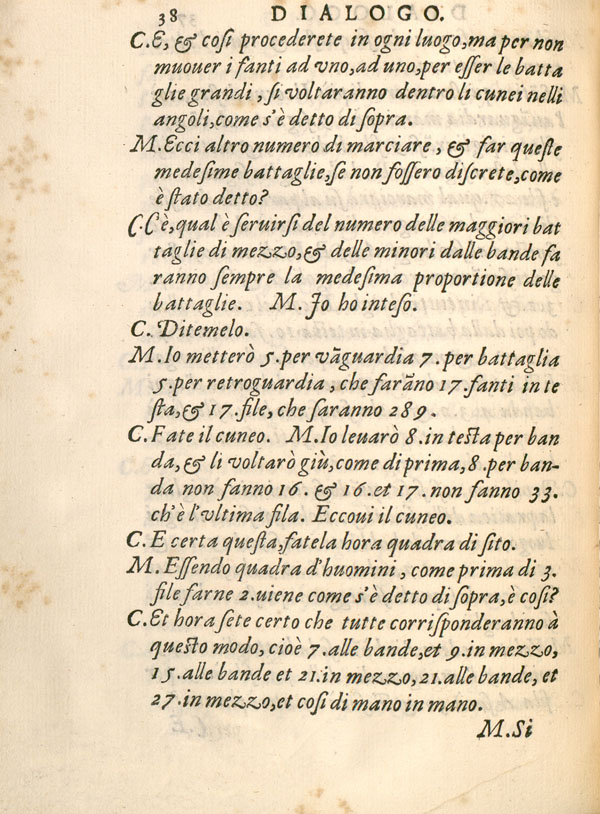 38 DIALOGO.
C.E, & cosi procederete in ogni luogo, ma per non
muouer i fanti ad vno, ad uno, per esser le batta
glie grandi, si voltaranno dentro li cunei nelli
angoli, come s'è detto di sopra.
M.Ecci altro numero di marciare, & far queste
medesime battaglie, se non fossero discrete, come
è stato detto?
C.C'è, qual è seruirsi del numero delle maggiori bat
taglie di mezzo, & delle minori dalle bande fa
ranno sempre la medesima proportione delle
battaglie. M. Io ho inteso.
C. Ditemelo.
M.Io metterò 5. per vãguardia 7. per battaglia
5. per retroguardia, che farãno 17. fanti in te
sta, & 17. file, che faranno 289.
C.Fate il cuneo. M.Io leuarò 8. in testa per ban
da, & li voltarò giù, come di prima, 8. per ban-
da non fanno 16. & 16. et 17. non fanno 33.
ch'è l'vltima fila. Eccoui il cuneo.
C.E certa questa, fatela hora quadra di sito.
M.Essendo quadra d'huomini, come prima di 3.
file farne 2. uiene come s'è detto di sopra, è cosi?
C.Et hora sete certo che tutte corrisponderanno à
questo modo, cioè 7. alle bande, et 9. in mezzo,
15. alle bande et 21. in mezzo, 21. alle bande, et
27. in mezzo, et cosi di mano in mano.
M.Si